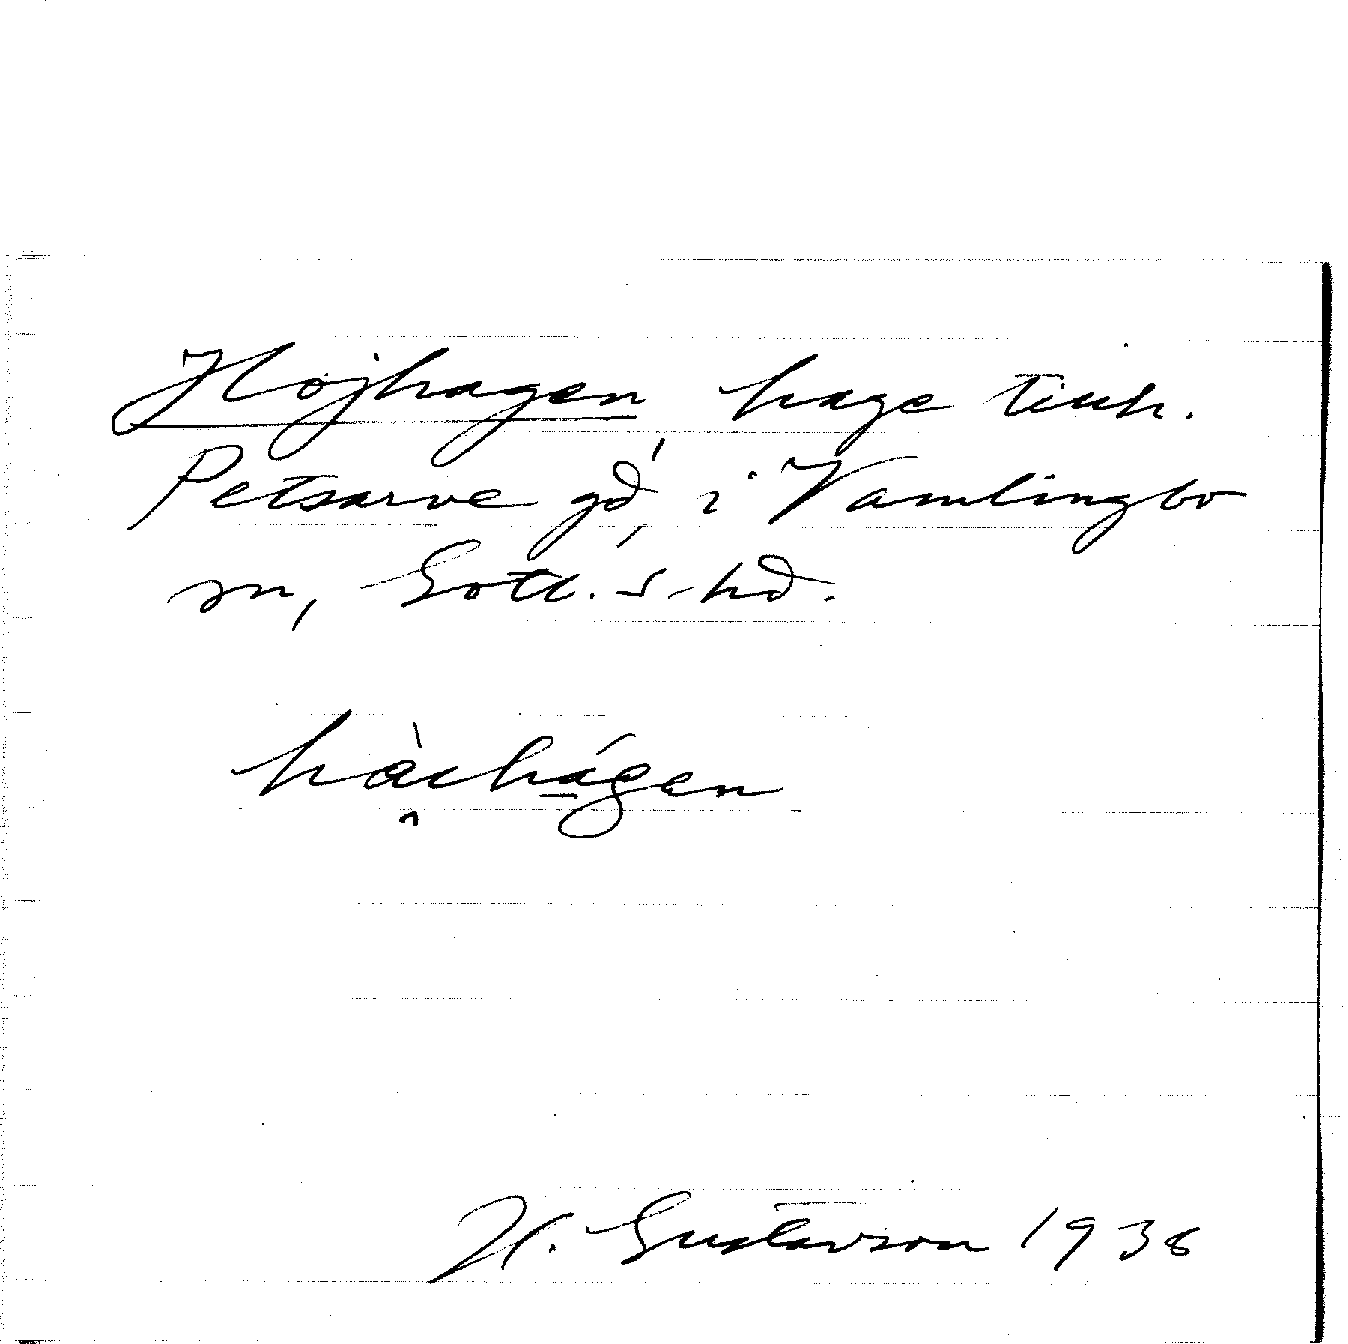 Höjhagen, hage tillh.
Petsarve gd, i Vamlingbo
sn, Gotl. s. hd.
H. Gustavson 1938